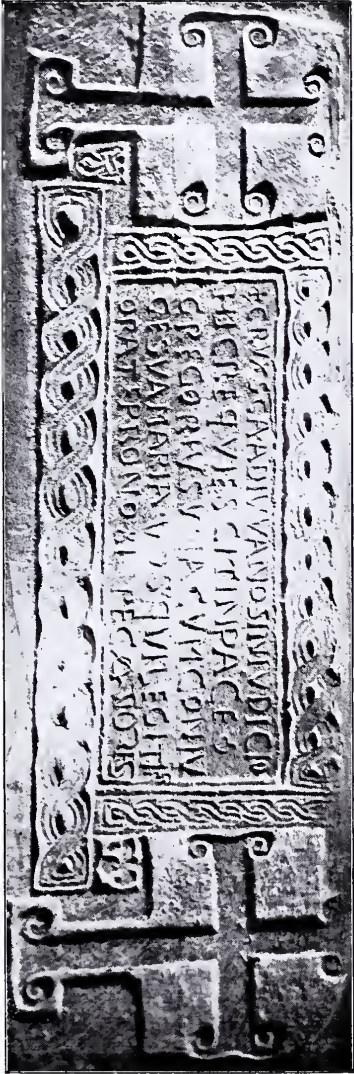 CRVX SCA ADIVVA NOS IN IVDICIO
HIC REQVIESCIT IN PACE S
GREGORIVS V IA CVM CONIV
GE SVA MARIA V OS QVI LEGITI
ORATE PRO NOBI PECCATORIS